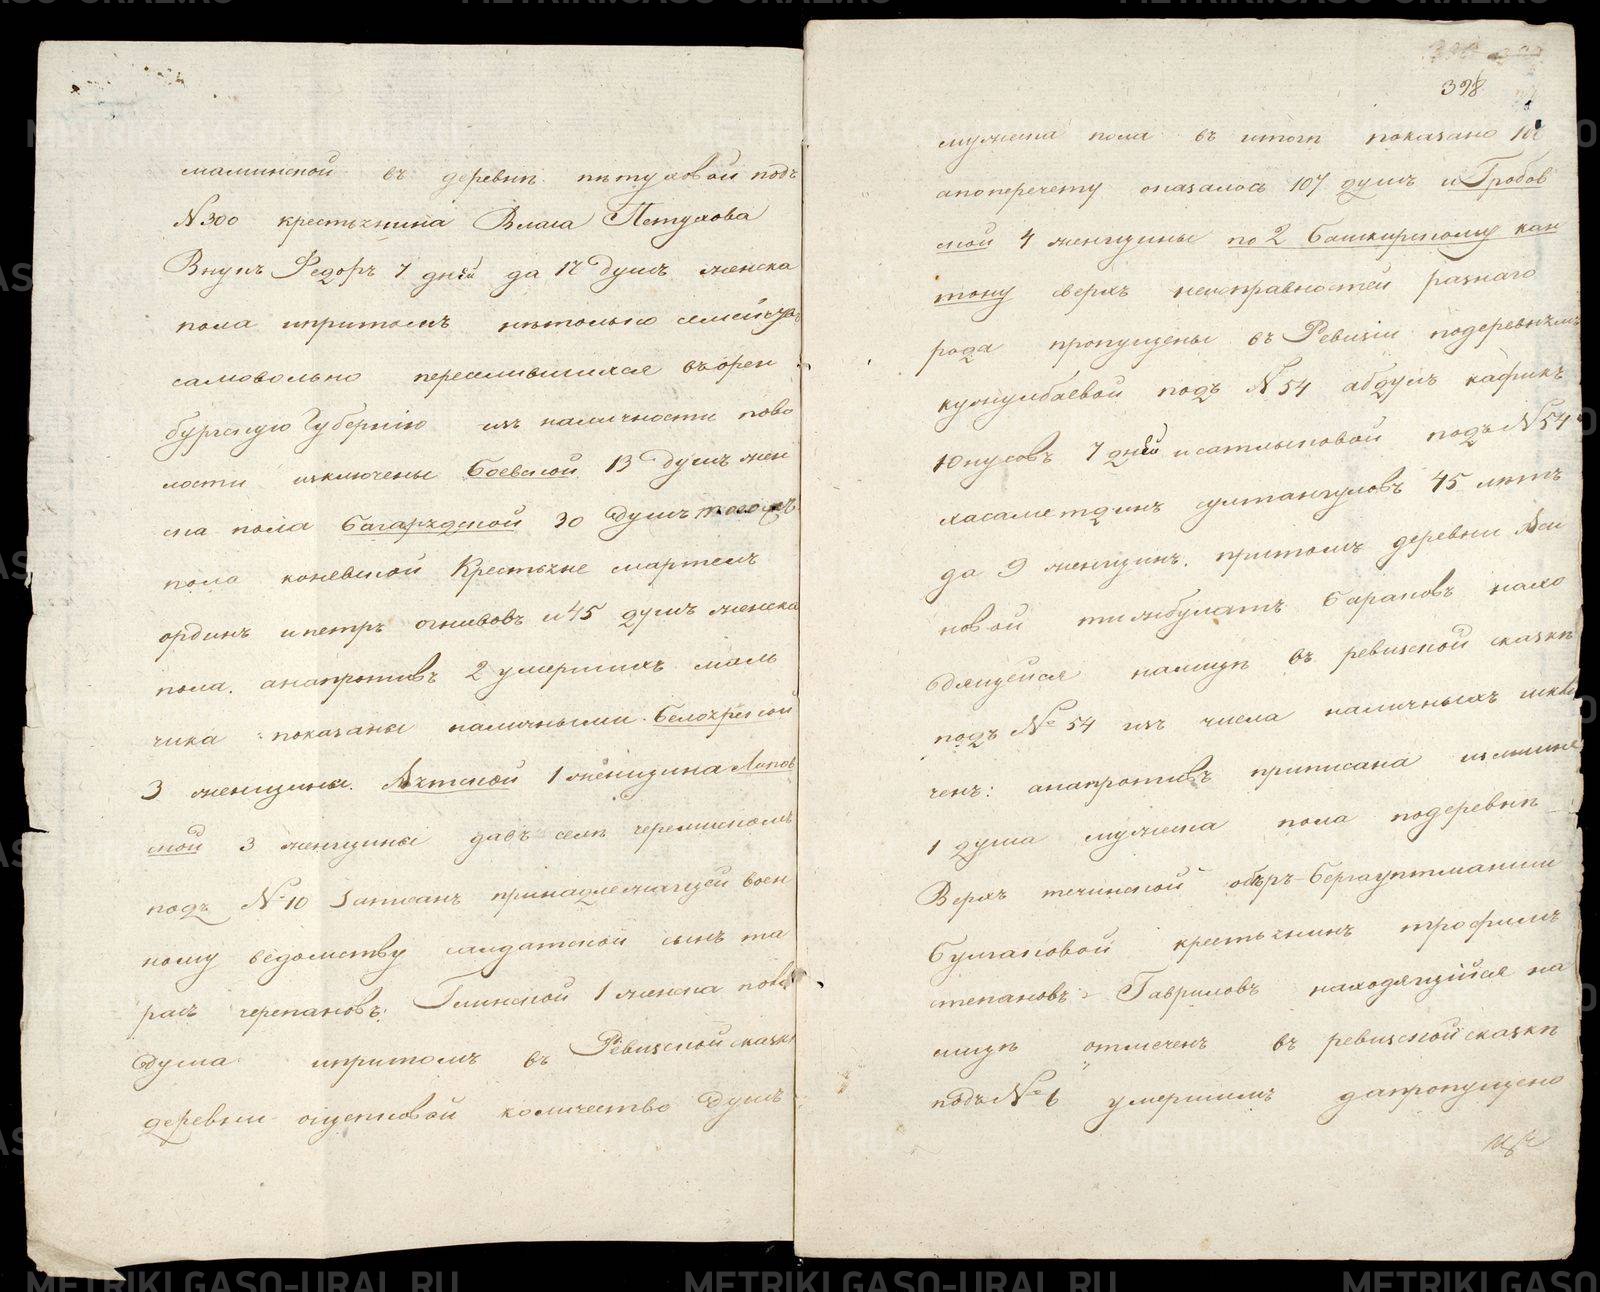 маминской въ деревнѣ пѣтуховой подъ
№300 крестьянина Власа Петухова
Внукъ Федоръ 7 дней да 12 душъ женска
пола ипритомъ нѣтолько семейства
самовольно переселившихся въорен
бургскую Губернію изъ наличности пово
лости изключены Боевской 13 душъ жен
ска пола Багарядской 30 душъ тогожъ
пола коневской Крестьяне мартемъ
ординъ ипетръ огнивовъ и45 душъ женска
пола. анапротивъ 2 умершихъ маль
чика показаны наличными. Белоярской
3 женщины. 1 женщина Липов
ской 3 женщины давъ селѣ черемискомъ
подъ №10 Записанъ принадлежащей воен
ному ведомству салдатской сынъ та
расъ черепановъ. Глинской 1 женска пола
душа ипритомъ въ Ревизской сказкѣ
деревни ощепковой количество душъ
398
мужеска пола въ итогѣ показано
апоперечету оказалось 107 душъ и Гробов
ской 4 женщины по 2 башкирскому кан
тону сверхъ неисправностей разнаго
рода пропущены въ Ревизіи подеревнямъ
кунумбаевой подъ №54 абдулъ кафикъ
Юнусовъ 7 дней исатлыковой подъ №54
хасаметдинъ султангуловъ 45 лѣтъ
да 9 женщинъ. притомъ деревни
новой тимбулатъ Сараповъ нахо
дящейся налицѣ въ ревизской сказкѣ
подъ №54 изъ числа наличныхъ изклю
ченъ: анапротивъ приписана излишне
1 душа мужеска пола подеревнѣ
Верхъ течинской оберъ-бергауптманши
Булгаковой крестьянинъ трофимъ
степановъ Гавриловъ находящійся на
лицѣ отмеченъ въ ревизской сказкѣ
подъ №6 умершимъ дапропущено
METRIKI.GASO-URAL.RU